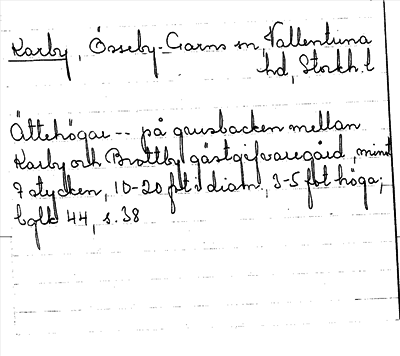 Karby, Össeby-Garns sn, Vallentuna
hd, Stockh. l
Ättehögar -- på grusbacken mellan
Karby och Brottby gästgifvaregård, minst
7 stycken, 10-20 fot i diam., 3-5 fot höga;
bglb 44, s. 38